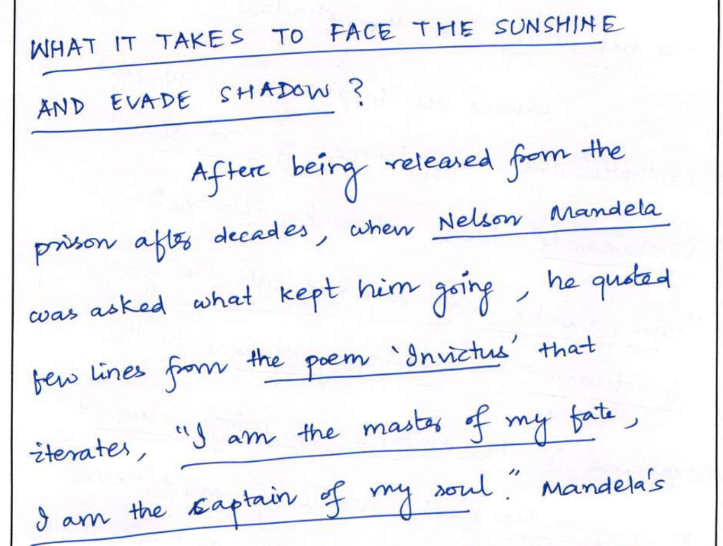 WHAT IT TAKES TO FACE THE SUNSHINE
AND EVADE SHADOW ?
After being released from the
prison after decades, when Nelson Mandela
was asked what kept him going, he quoted
few lines from the poem 'Invictus' that
iterates, "I am the master of my fate,
I am the captain of my soul." Mandela's